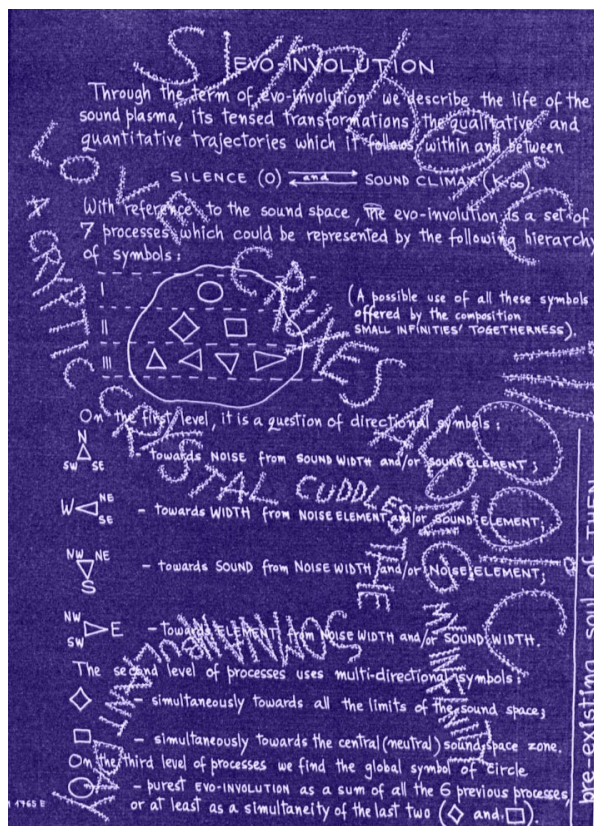 EVO-INVOLUTION
Through the term of evo-involution we describe the life of the
sound plasma, its tensed transformations, the qualitative and
quantitative trajectories which it follows within and between
SILENCE (O) and SOUND CLIMAX (K∞)
With reference to the sound space, the evo-involution is a set of
7 processes which could be represented by the following hierarchy
of symbols:
I
II
III
(A possible use of all these symbols
offered by the composition
SMALL INFINITIES' TOGETHERNESS).
On the first level, it is a question of directional symbols:
N
SW SE
- towards NOISE from SOUND WIDTH and/or SOUND ELEMENT;
W NE
SE
- towards WIDTH from NOISE ELEMENT and/or SOUND ELEMENT;
NW NE
S
- towards SOUND from NOISE WIDTH and/or NOISE ELEMENT;
NW
SW E
- towards ELEMENT from NOISE WIDTH and/or SOUND WIDTH.
The second level of processes uses multi-directional symbols:
- simultaneously towards all the limits of the sound space;
- simultaneously towards the central (neutral) sound space zone.
On the third level of processes we find the global symbol of circle
- purest EVO-INVOLUTION as a sum of all the 6 previous processes,
or at least as a simultaneity of the last two (◇ and □).
1765 E
pre-existing soul of THEN
LOVE
4 CRYPTIC
CRUXES
CRYSTAL CUDDLES
THE